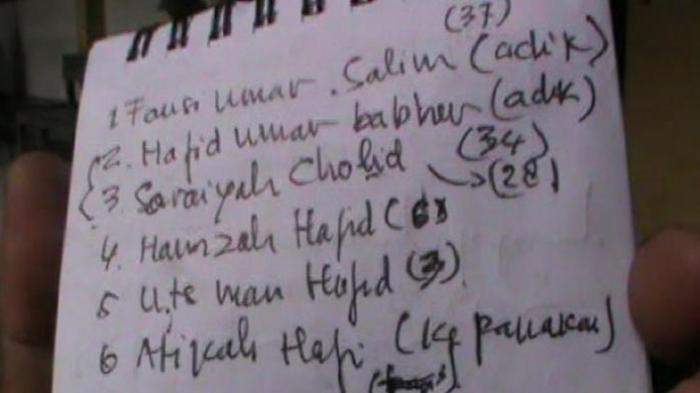 (37)
1 Fausi Umar . Salim (adik)
2. Hafid Umar babher (adik)
(34)
3. Saraiyah Cholid → (28)
4. Hamzah Hafid (
5 Utsman Hafid (3)
6 Atikah Hafi (Kep